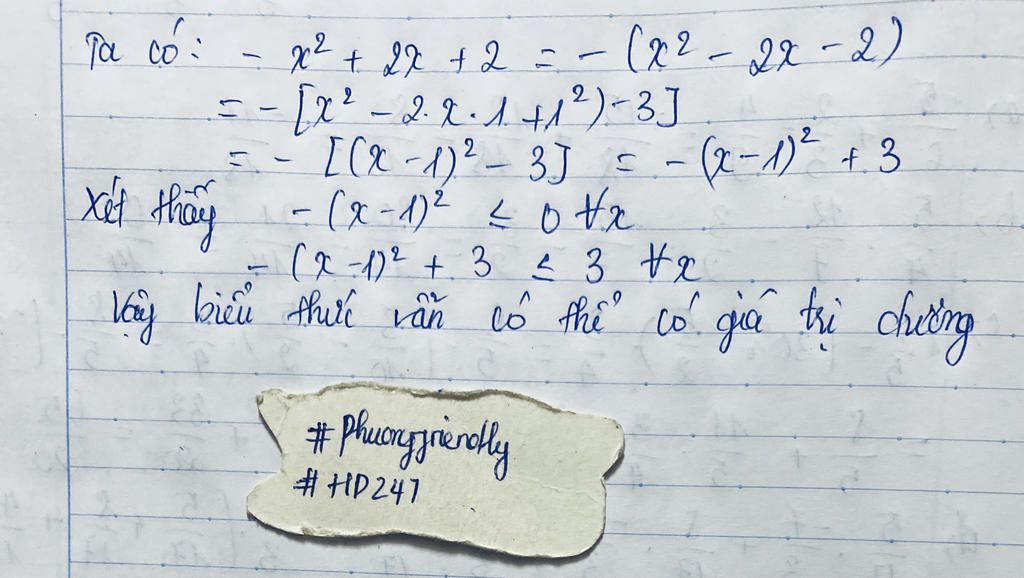 Ta có: - x² + 2x + 2 = - (x² - 2x - 2)
= - [x² - 2.x.1 + 1²) - 3]
= - [(x - 1)² - 3] = - (x - 1)² + 3
Xét thấy - (x - 1)² ≤ 0 ∀x
- (x - 1)² + 3 ≤ 3 ∀x
Vậy biểu thức vẫn có thể có giá trị dương
#Phuongfriendly
#HD247